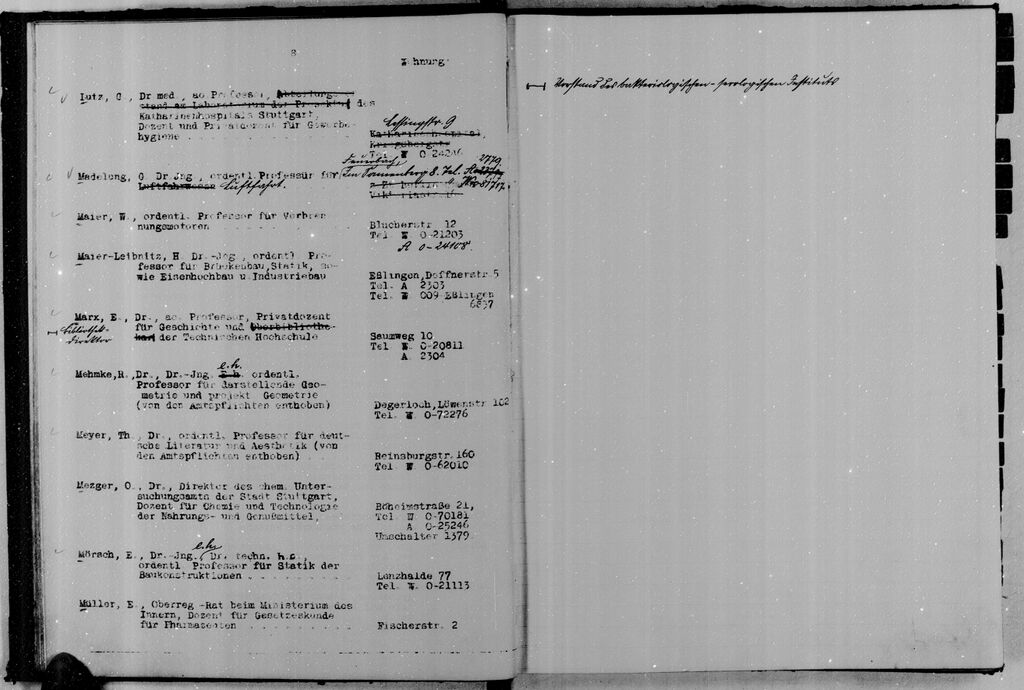 8
Wohnung
Lutz, G., Dr med., ao Professor, Abteilungs-
vorstand am Laboratorium der Prosektur des
Katharinenhospitals Stuttgart,
Dozent und Privatdozent für Gewerbe-
hygiene
Lessingstr. 9
Katharinenhospital,
Kriegsbergstr
Tel W 0-24246
Madelung, G Dr Jng, ordentl. Professur für
Luftfahrwesen Luftfahrt.
Feuerbach,
Im Tannenberg 8. Tel.
2779
Maier, W., ordentl. Professor für Verbren-
nungsmotoren
Blücherstr 12
Tel W 0-21203
A 0-24108.
Maier-Leibnitz, H. Dr.-Jng, ordentl Pro-
fessor für Brückenbau, Statik, so-
wie Eisenhochbau u Industriebau
Eßlingen, Doffnerstr 5
Tel. A 2303
Tel. W 009 Eßlingen
6837
Marx, E., Dr., ao. Professor, Privatdozent
für Geschichte und Oberbibliothe-
kar der Technischen Hochschule
Bibliothek-
direktor
Saumweg 10
Tel W. 0-20811
A 2304
Mehmke, R., Dr., Dr.-Jng. E.h. e.h. ordentl.
Professor für darstellende Geo-
metrie und projekt Geometrie
(von den Amtspflichten enthoben)
Degerloch, Löwenstr 102
Tel. W 0-72276
Meyer, Th., Dr., ordentl. Professor für deut-
sche Literatur und Aesthetik (von
den Amtspflichten enthoben)
Reinsburgstr. 160
Tel W 0-62010
Mezger, O., Dr., Direktor des chem Unter-
suchungsamts der Stadt Stuttgart,
Dozent für Chemie und Technologie
der Nahrungs- und Genußmittel,
Böheimstraße 21,
Tel W 0-70181
A 0-25246
Umschalter 1379
Mörsch, E., Dr.-Jng. e.h., Dr. techn. h.c.,
ordentl Professor für Statik der
Baukonstruktionen
Lenzhalde 77
Tel. W. 0-21113
Müller, E., Oberreg -Rat beim Ministerium des
Innern, Dozent für Gesetzeskunde
für Pharmazeuten
Fischerstr. 2
Vorstand des bakteriologischen-serologischen Instituts